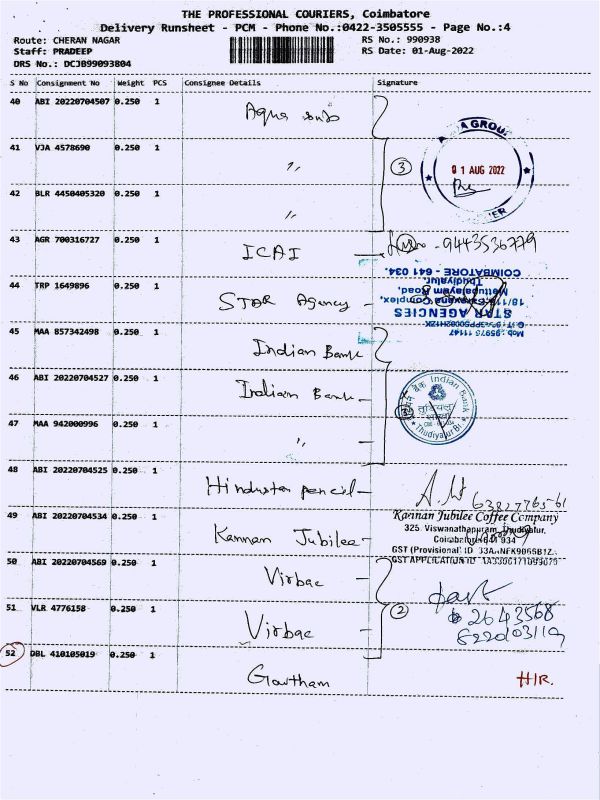 THE PROFESSIONAL COURIERS, Coimbatore
Delivery Runsheet - PCM - Phone No.:0422-3505555 - Page No.:4
Route: CHERAN NAGAR
RS No.: 990938
Staff: PRADEEP
RS Date: 01-Aug-2022
DRS No.: DCJ899093804
S No Consignment No Weight PCS Consignee Details Signature
40 ABI 20220704507 0.250 1 Aqua
41 VJA 4578690 0.250 1 "
3
01 AUG 2022
42 BLR 4450405320 0.250 1 "
43 AGR 700316727 0.250 1 ICAI - 9443536779
44 TRP 1649896 0.250 1 STAR Agency -
STAR AGENCIES
Mettupalayam Road,
Thudiyalur
COIMBATORE - 641 034.
45 MAA 857342498 0.250 1 Indian Bank
46 ABI 20220704527 0.250 1 Indian Bank -
Indian Bank
Thudiyalur
47 MAA 942000996 0.250 1 " -
48 ABI 20220704525 0.250 1 Hindustan pencil -
49 ABI 20220704534 0.250 1 Kannan Jubilee -
Kannan Jubilee Coffee Company
325, Viswanathapuram, Thudiyalur,
Coimbatore-641 034
50 ABI 20220704569 0.250 1 Virbac
51 VLR 4776158 0.250 1 Virbac -
2
2643568
52 DBL 410105019 0.250 1 Gowtham